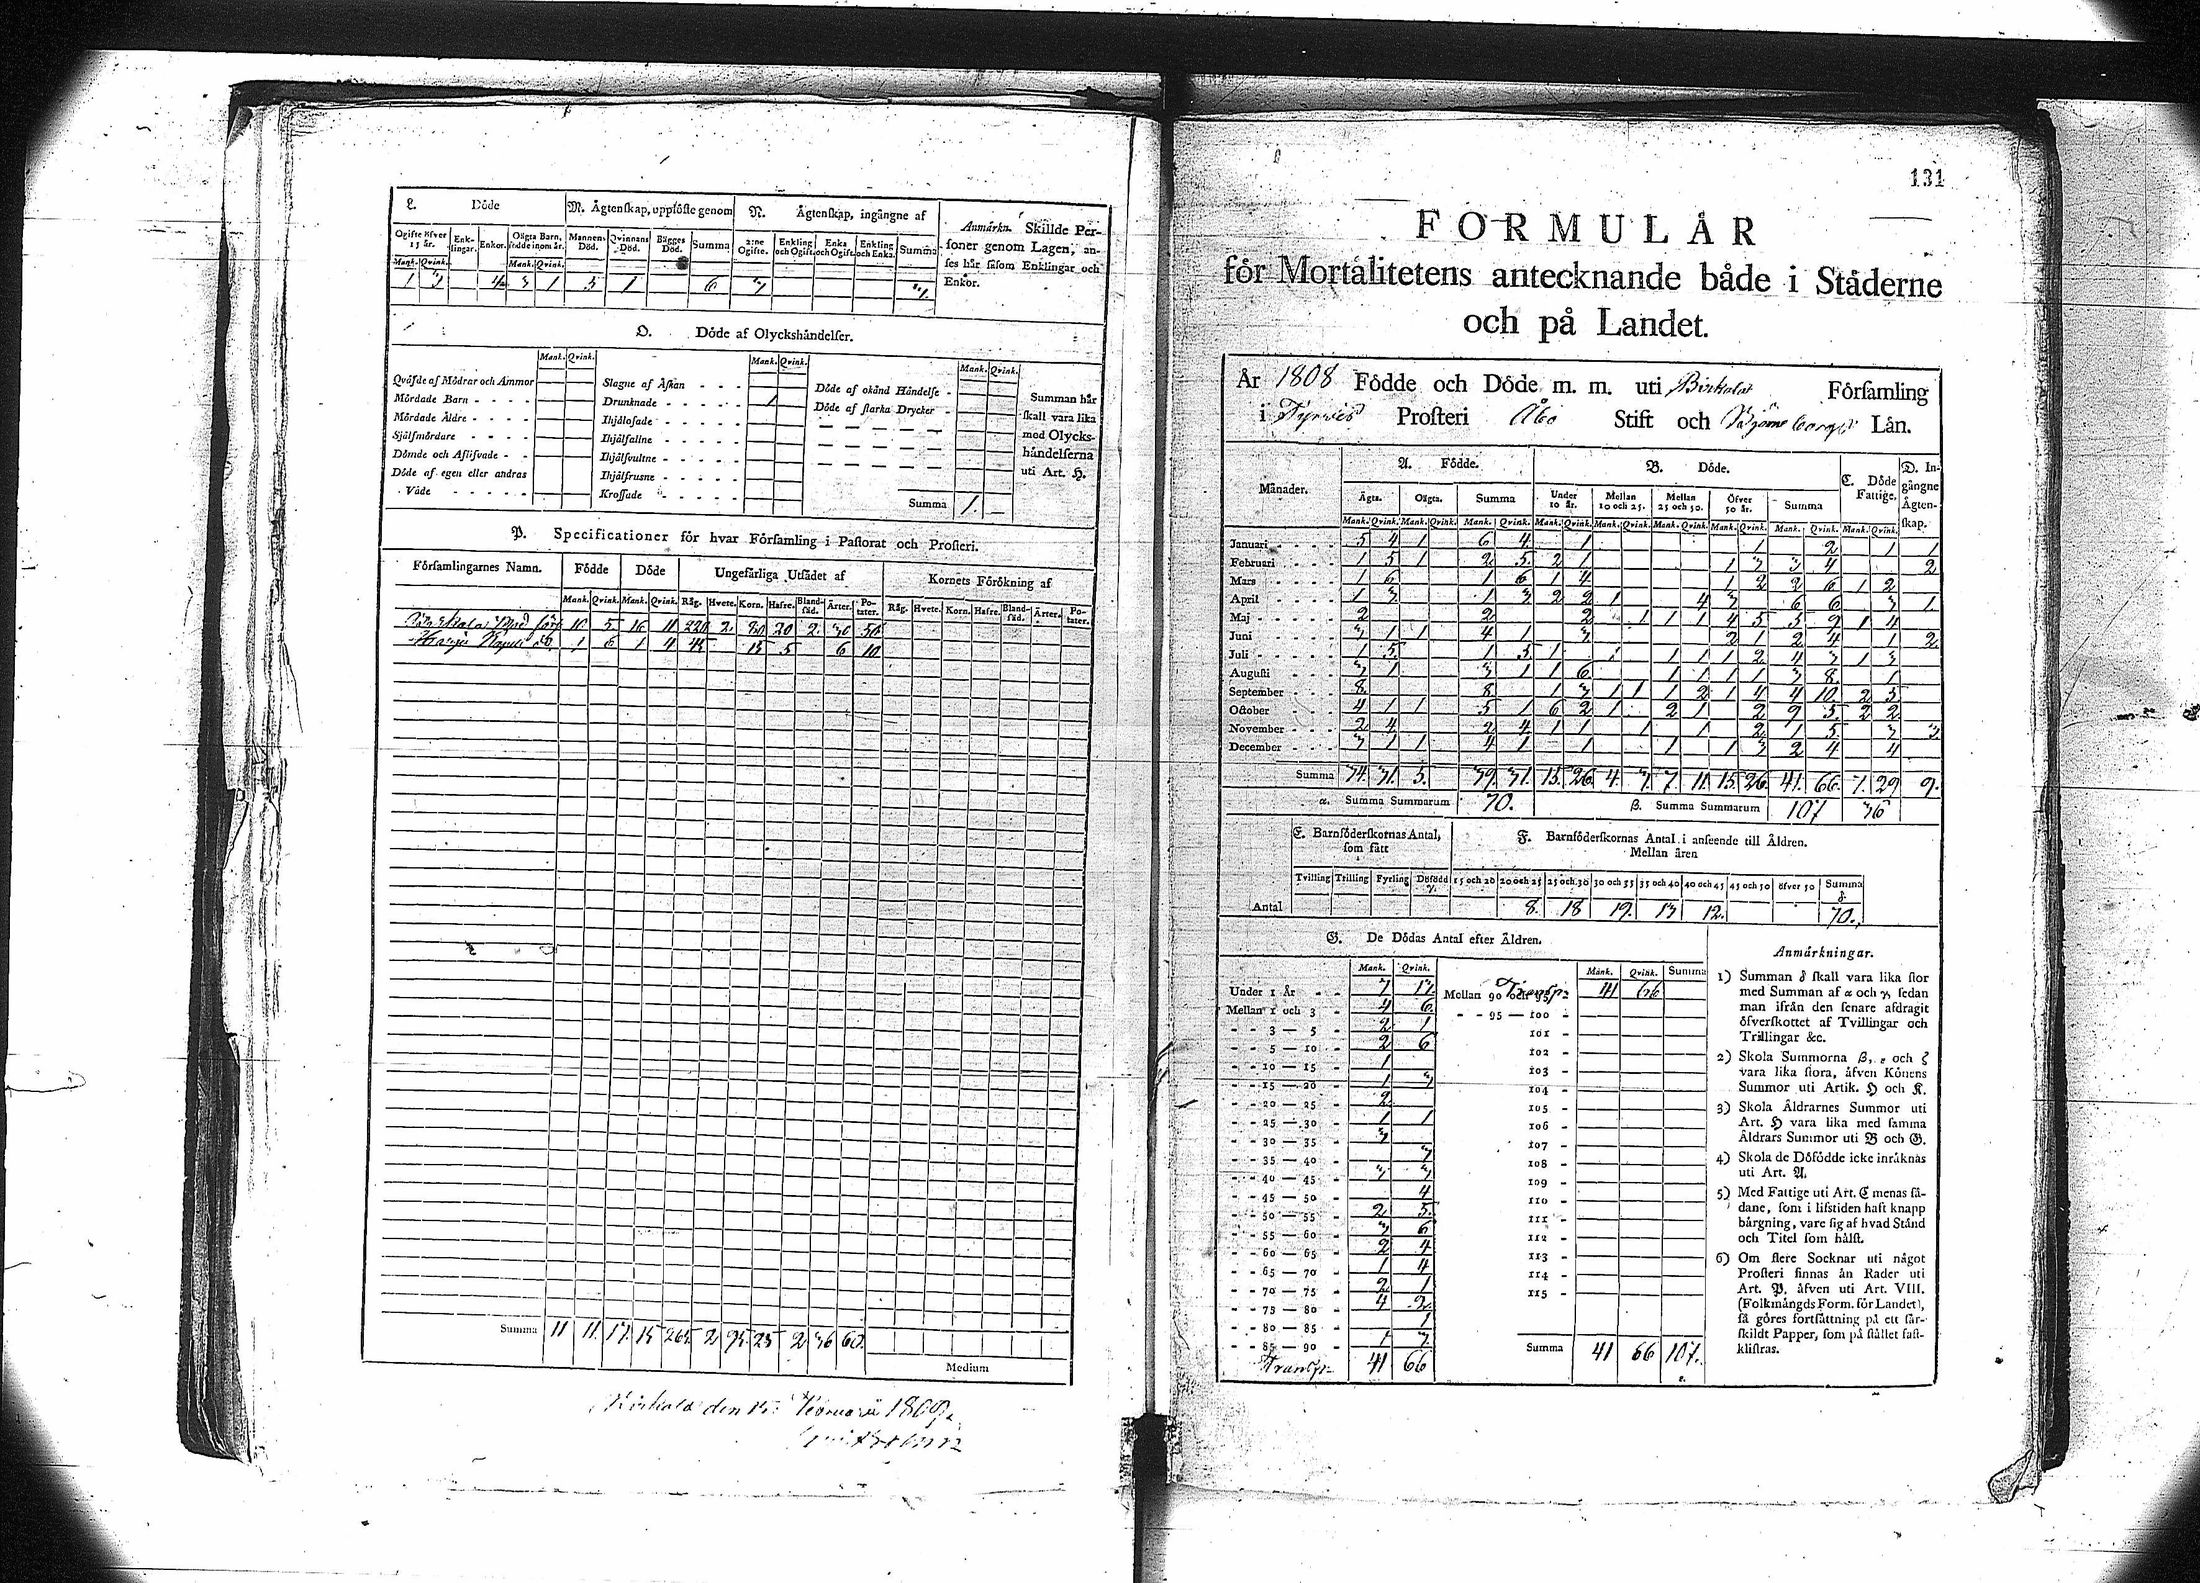 L. Döde
M. Ägtenskap, upplöste genom
N. Ägtenskap, ingångne af
Anmärkn. Skillde Per-
soner genom Lagen, an-
ses här såsom Enklingar och
Enkor.
Ogifte öfver 15 år. Enk-lingar. Enkor. Oägta Barn, födde inom år. Mannens Död. Qvinnans Död. Bägges Död. Summa 2:ne Ogifte. Enkling och Ogift. Enka och Ogift. Enkling och Enka. Summa
Mank. Qvink. Mank. Qvink.
1 3 4 3 1 5 1 6
O. Döde af Olyckshändelser.
Mank. Qvink. Mank. Qvink. Mank. Qvink.
Qväfde af Mödrar och Ammor
Mördade Barn - - - -
Mördade Äldre - - - -
Själfmördare - - - -
Dömde och Aflifvade - -
Döde af egen eller andras
Våde - - - - -
Slagne af Åskan - - -
Drunknade - - - - - 1
Ihjälosade - - - - -
Ihjälfallne - - - - -
Ihjälsvultne - - - - -
Ihjälfrusne - - - - -
Krossade - - - - -
Döde af okänd Händelse -
Döde af starka Drycker -
Summa 1. —
Summan här
skall vara lika
med Olycks-
händelserna
uti Art. H.
P. Specificationer för hvar Församling i Pastorat och Prosteri.
Församlingarnes Namn. Födde Döde Ungefärliga Utsädet af Kornets Förökning af
Mank. Qvink. Mank. Qvink. Råg. Hvete. Korn. Hafre. Bland-säd. Ärter. Po-tater. Råg. Hvete. Korn. Hafre. Bland-säd. Ärter. Po-tater.
10 5 16 11 220 2. 80 20 2. 30 50
Harju 1 6 1 4 45 15 5 6 10
Summa 11 11 17 15 265 2 95 25 2 36 60
Medium
Birkala den 15 Februarii 1809.
131
FORMULÄR
för Mortalitetens antecknande både i Städerne
och på Landet.
År 1808 Födde och Döde m. m. uti Birkala Församling
i Tyrvis Prosteri Åbo Stift och Björneborgs Län.
Månader. A. Födde. B. Döde. C. Döde Fattige. D. In-gångne Ägten-skap.
Ägta. Oägta. Summa Under 10 år. Mellan 10 och 25. Mellan 25 och 50. Öfver 50 år. Summa
Mank. Qvink. Mank. Qvink. Mank. Qvink. Mank. Qvink. Mank. Qvink. Mank. Qvink. Mank. Qvink. Mank. Qvink. Mank. Qvink.
Januari - - - 5 4 1 6 4 1 1 2 1 1
Februari - - - 1 5 1 2 5 2 1 1 3 3 4 2
Mars - - - 1 6 1 6 1 4 1 2 2 6 1 2
April - - - 1 3 1 3 2 2 1 4 3 6 6 3 1
Maj - - - 2 2 2 1 1 1 4 5 5 9 1 4
Juni - - - 3 1 1 4 1 3 2 1 2 4 1 2
Juli - - - 1 5 1 5 1 1 1 1 1 2 4 3 1 3
Augusti - - - 3 1 3 1 1 6 1 1 1 1 3 8 1
September - - - 8 8 1 3 1 1 1 2 1 4 4 10 2 5
October - - - 4 1 1 5 1 6 2 1 2 1 2 9 5 2 2
November - - - 2 4 2 4 1 1 1 1 2 1 5 3 3
December - - - 3 1 1 4 1 1 1 1 3 2 4 4
Summa 34. 31. 5. 39. 31. 15. 26. 4. 3. 7. 11. 15. 26. 41. 66. 7. 29 9.
α. Summa Summarum 70. β. Summa Summarum 107 36
E. Barnföderskornas Antal, som fått
F. Barnföderskornas Antal i anseende till Åldren.
Mellan åren
Tvilling Trilling Fyrling Dödfödd γ. 15 och 20 20 och 25 25 och 30 30 och 35 35 och 40 40 och 45 45 och 50 öfver 50 Summa δ.
Antal 8. 18 19. 13 12. 70.
G. De Dödas Antal efter Åldren.
Mank. Qvink. Mank. Qvink. Summa
Under 1 År - - 7 13.
Mellan 1 och 3 - 4 6
- - 3 — 5 - 2 1
- - 5 — 10 - 2 6
- - 10 — 15 - 1
- - 15 — 20 - 1 3
- - 20 — 25 - 2
- - 25 — 30 - 1 1
- - 30 — 35 - 3
- - 35 — 40 - 3
- - 40 — 45 - 3 3
- - 45 — 50 - 4
- - 50 — 55 - 2 5
- - 55 — 60 - 3 6
- - 60 — 65 - 2 4
- - 65 — 70 - 1 4
- - 70 — 75 - 2 1
- - 75 — 80 - 4 2
- - 80 — 85 - 1
- - 85 — 90 - 1 3
Transp. 41 66
Mellan 90 och 95 - Transp. 41 66
- - 95 — 100 -
101 -
102 -
103 -
104 -
105 -
106 -
107 -
108 -
109 -
110 -
111 -
112 -
113 -
114 -
115 -
Summa 41 66 107.
ε.
Anmärkningar.
1) Summan δ skall vara lika stor
med Summan af α och γ, sedan
man ifrån den senare afdragit
öfverskottet af Tvillingar och
Trillingar &c.
2) Skola Summorna β, ε och ζ
vara lika stora, äfven Könens
Summor uti Artik. H och K.
3) Skola Åldrarnes Summor uti
Art. H vara lika med samma
Åldrars Summor uti B och G.
4) Skola de Dödfödde icke inräknas
uti Art. A.
5) Med Fattige uti Art. C menas så-
dane, som i lifstiden haft knapp
bärgning, vare sig af hvad Stånd
och Titel som hälst.
6) Om flere Socknar uti något
Prosteri finnas än Rader uti
Art. P, äfven uti Art. VIII.
(Folkmängds Form. för Landet),
så göres fortsättning på ett sär-
skildt Papper, som på stället fast-
klistras.